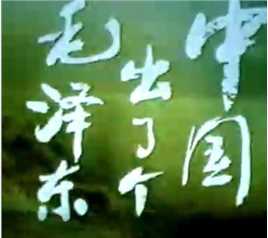 中国
出了个
毛泽东